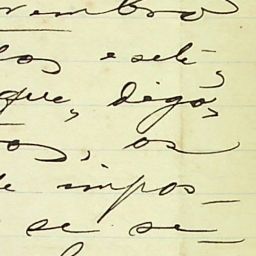 vembro
los e sete,
que, digo,
os, os
de impos_
se se_